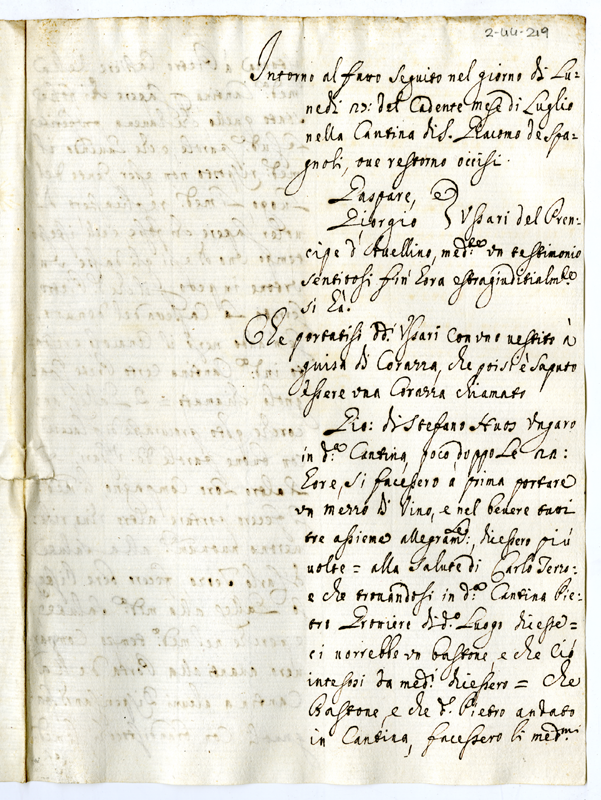 2-44-219
Intorno al fatto seguito nel giorno di Lu-
nedi 23: del Cadente mese di Luglio
nella Cantina di S. Giacomo de Spa-
gnoli, oue restorno occisi.
Gaspare, e
Giorgio } Ussari del Pren-
cipe d'Auellino, med.te un testimonio
sentitosi fin'hora estragiuditialm.te
si hà.
Che portatisi dd.i Ussari con uno uestito à
guisa di Corazza, che poi s'è saputo
essere una Corazza chiamato
Gio: di Stefano Ungaro
in d.a Cantina, poco doppo le
hore, si facessero à prima portare
un mezzo di Vino, e nel beuere tutti
tre assieme allegram.te, dicessero più
uolte = alla salute di Carlo Terzo:
e che trouandosi in d.a Cantina Pie-
tro di d.o Luogo dicesse =
ci uorrebbe un bastone, e che ciò
intesosi da med.i dicessero = che
bastone, e che d.o Pietro andato
in Cantina, facessero li med.mi